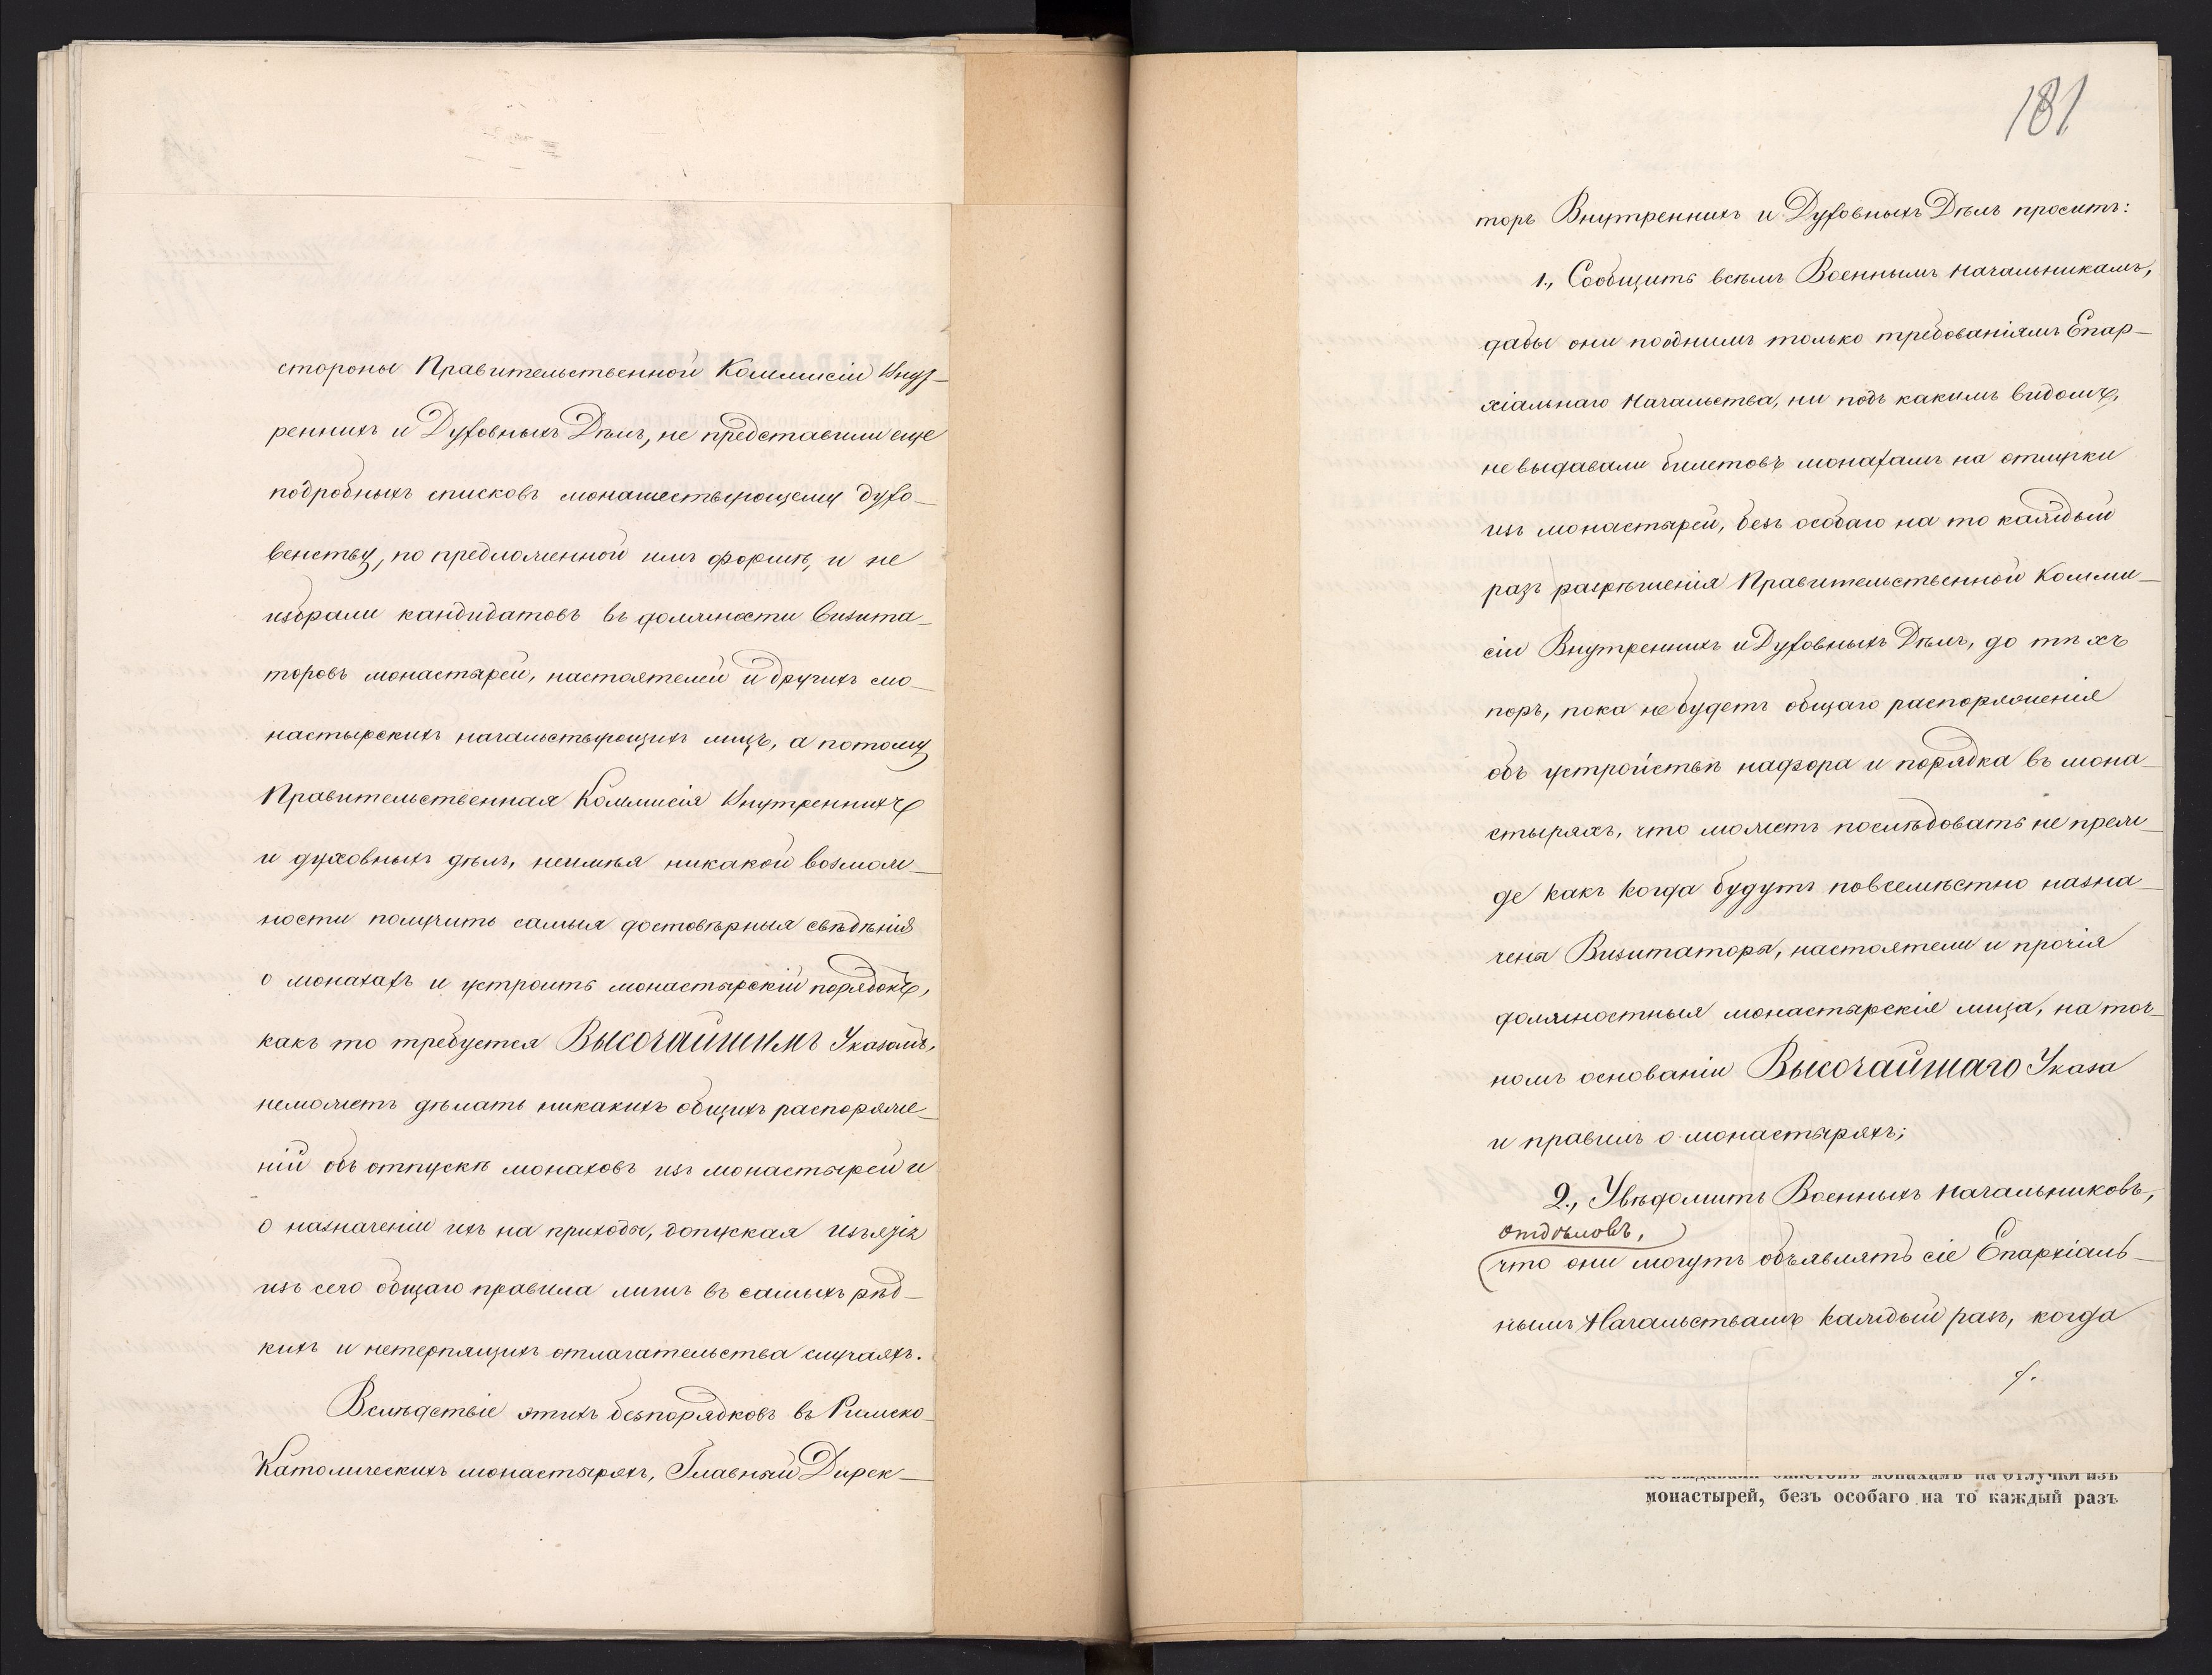 стороны Правительственной Коммисіи Внут-
реннихъ и Духовныхъ Дѣлъ, не представили еще
подробныхъ списковъ монашествующему духо-
венству, по предложенной имъ формѣ, и не
избрали кандидатовъ въ должности Визита-
торовъ монастырей, настоятелей и другихъ мо-
настырскихъ начальствующихъ лицъ, а потому
Правительственная Коммисія Внутреннихъ
и духовныхъ дѣлъ, неимѣя никакой возмож-
ности получить самыя достовѣрныя свѣдѣнія
о монахахъ и устроить монастырскій порядокъ,
какъ то требуется Высочайшимъ Указомъ,
неможетъ дѣлать никакихъ общихъ распоряже-
ній объ отпускѣ монаховъ изъ монастырей и
о назначеніи ихъ на приходы, допуская изъятія
изъ сего общаго правила лишь въ самыхъ рѣд-
кихъ и нетерпящихъ отлагательства случаяхъ.
Вслѣдствіе этихъ безпорядковъ въ Римско-
Католическихъ монастыряхъ, Главный Дирек-
181
торъ Внутреннихъ и Духовныхъ Дѣлъ проситъ:
1., Сообщить всѣмъ Военнымъ Начальникамъ,
дабы они пооднимъ только требованіямъ Епар-
хіальнаго Начальства, ни подъ какимъ видомъ,
невыдавали билетовъ монахамъ на отлучки
изъ монастырей, безъ особаго на то каждый
разъ разрѣшенія Правительственной Комми-
сіи Внутреннихъ и Духовныхъ Дѣлъ, до тѣхъ
поръ, пока не будетъ общаго распоряженія
объ устройствѣ надзора и порядка въ мона-
стыряхъ, что можетъ послѣдовать не преж-
де какъ когда будутъ повсемѣстно назна-
чены Визитаторы, настоятели и прочія
должностныя монастырскіе лица, на точ-
номъ основаніи Высочайшаго Указа
и правилъ о монастыряхъ;
2., Увѣдомить Военныхъ Начальниковъ,
Отдѣловъ,
что они могутъ объявлять сіе Епархіаль-
нымъ Начальствамъ каждый разъ, когда
не выдавали билетовъ монахамъ на отлучки изъ
монастырей, безъ особаго на то каждый разъ